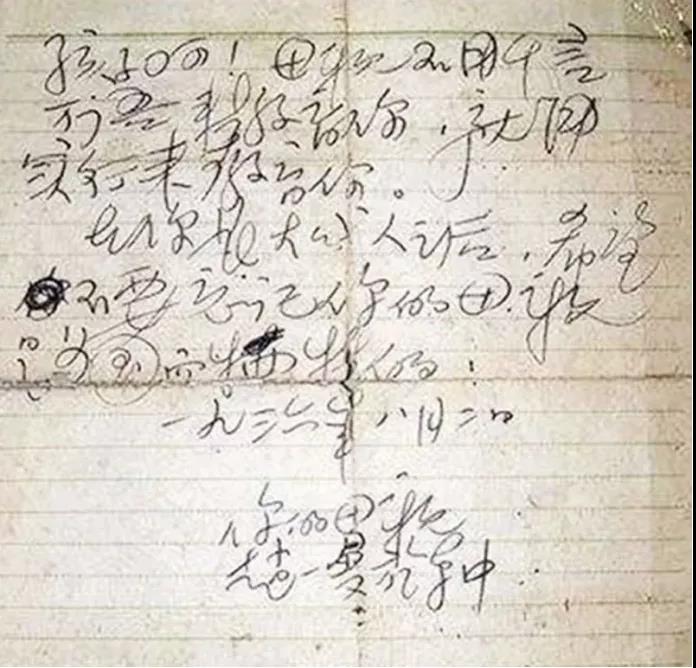 孩子呵！母亲不用千言
万语来教育你，就用
实行来教育你。
在你长大成人之后，希望
不要忘记你的母亲
是为国而牺牲的！
一九三六年八月二日
你的母亲
赵一曼於车中